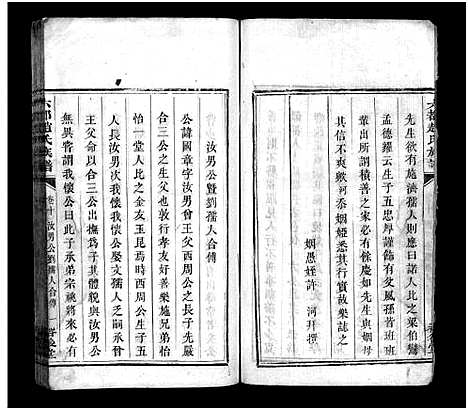 先生欲有施法孺人則應曰諸人比之梁伯鸞
孟德耀云生子五忠厚謹飾有文風孫皆班班
輩出所謂積善之家必有餘慶如先生與姻母
其信不爽歟河忝姻婭悉其行實故樂誌之
姻愚姪許 河拜撰
汝男公暨劉孺人合傳
公諱國章字汝男曾王父西周公之長子先嚴
台三公之生父也敦行孝友好善樂施兄弟怡怡
一堂人比之金友玉昆焉時西周公生子五
人長汝男次我懷公娶文孺人乏嗣承曾
王父命以台三公出撫為子其體貌與汝男公
無異皆謂我懷公曰此子承弟宗祧將來必
六都趙氏族譜 卷十 汝男公劉孺人合傳